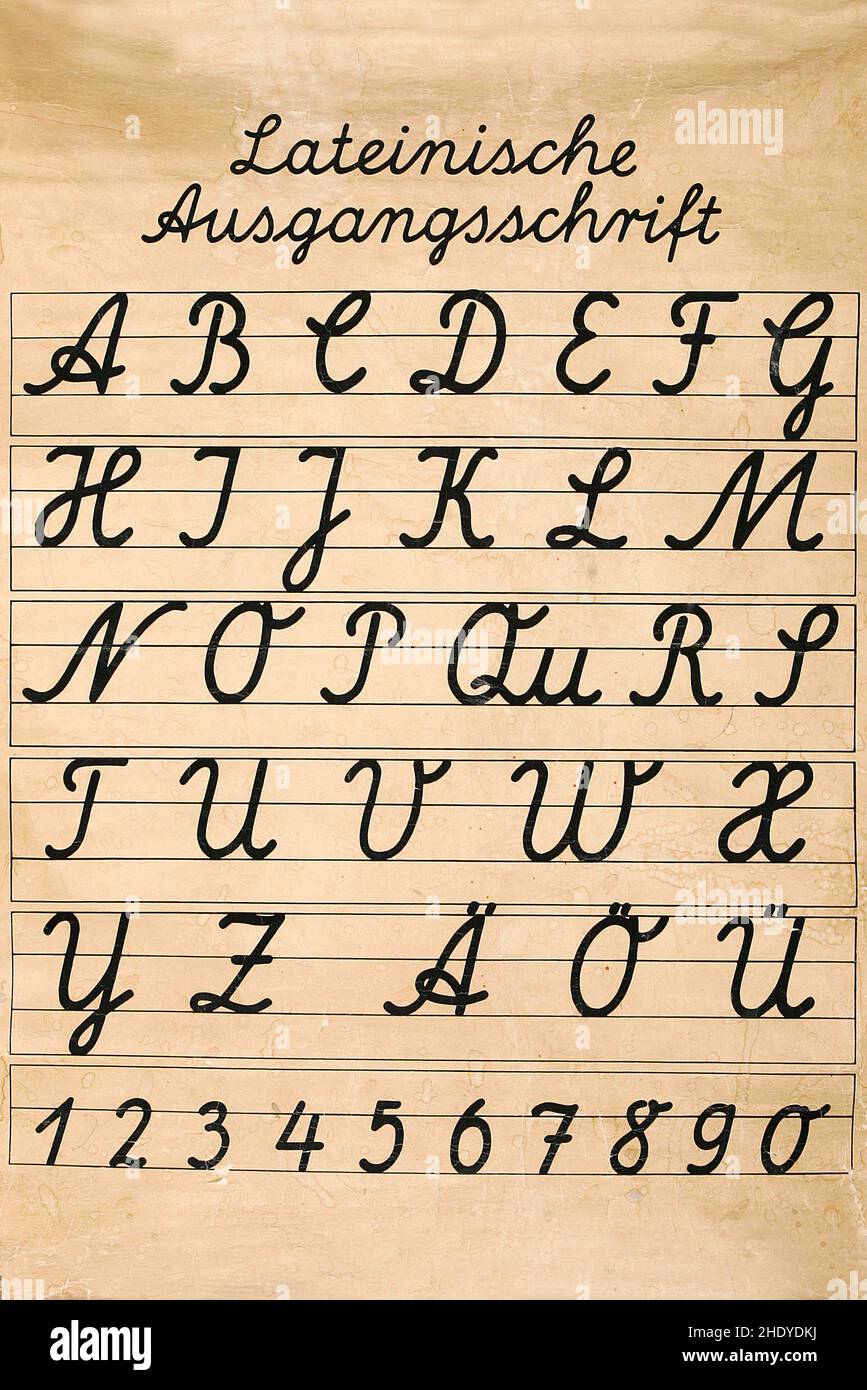 Lateinische
Ausgangsschrift
A B C D E F G
H I J K L M
N O P Qu R S
T U V W X
Y Z Ä Ö Ü
1 2 3 4 5 6 7 8 9 0
alamy
Image ID: 2HDYDKJ
www.alamy.com